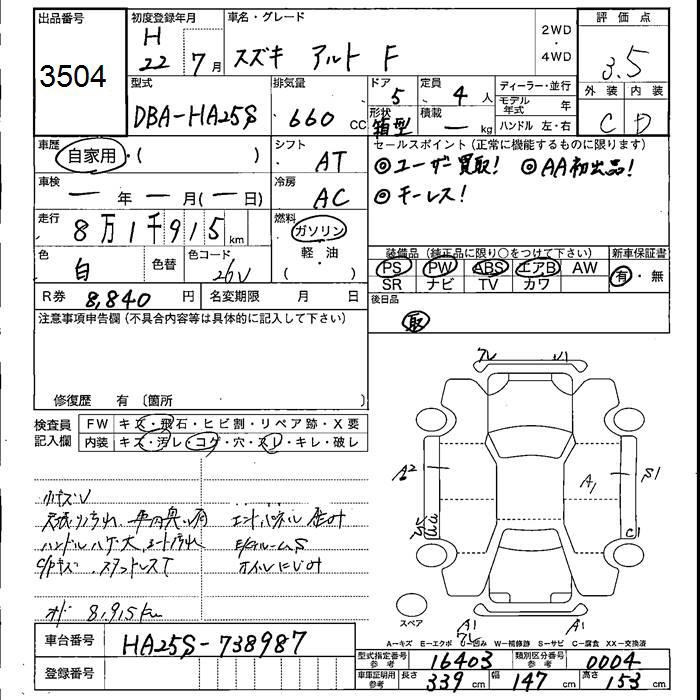 出品番号
3504
初度登録年月
H 22 7月
車名・グレード
スズキ アルト F
2WD
・
4WD
評価点
3.5
外装 内装
C D
型式
DBA-HA25S
排気量
660 CC
ドア
5
形状
箱型
定員
4 人
積載
ー kg
ディーラー・並行
モデル年式 年
ハンドル 左・右
車歴
自家用・( )
シフト
AT
セールスポイント (正常に機能するものに限ります)
◎ユーザー買取! ◎AA初出品!
◎キーレス!
車検
ー年ー月(ー日)
冷房
AC
走行
8万1千915km
燃料
ガソリン
軽・油
( )
色
白
色替
色コード
26V
装備品 (純正品に限り○をつけて下さい)
PS PW ABS エアB AW
SR ナビ TV カワ
新車保証書
有・無
R券 8,840円
名変期限 月 日
後日品
取
注意事項申告欄 (不具合内容等は具体的に記入して下さい)
修復歴 有 〔箇所 〕
検査員
記入欄
FW キズ・飛石・ヒビ割・リペア跡・X要
内装 キズ・汚レ・コゲ・穴・スレ・キレ・破レ
小キズU
ハンドルハゲ大 シート汚れ
オイルにじみ
車台番号 HA25S-738987
登録番号
A2
A1
S1
C1
A1
A1
スペア
A―キズ E―エクボ U―凹み W―補修跡 S―サビ C―腐食 XX―交換済
型式指定番号
参考
16403
類別区分番号
参考
0004
車庫証明用
参考
長さ 339 cm 幅 147 cm 高さ 153 cm